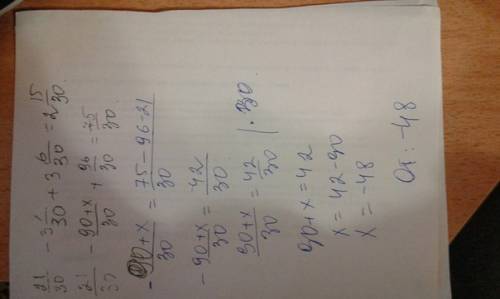 21/30 - 3 x/30 + 3 6/30 = 2 15/30
21/30 - 90+x/30 + 96/30 = 75/30
- 90+x/30 = 75-96-21/30
- 90+x/30 = -42/30
90+x/30 = 42/30 | · 30
90+x=42
x=42-90
x=-48
От: -48